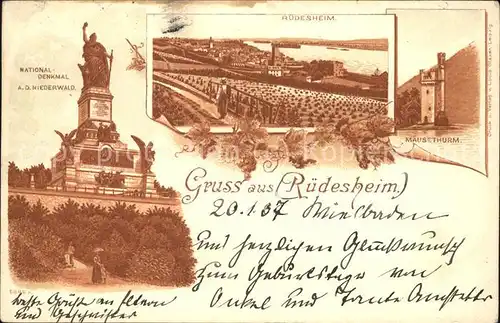 RÜDESHEIM.
NATIONAL-
DENKMAL
A.D. NIEDERWALD.
MÄUSETHURM.
Gruss aus (Rüdesheim.)
20.1.07 Wiesbaden
und herzlichen Glückwunsch
zum Geburtstage von
Onkel und Tante
beste Grüße an Eltern
und Geschwister